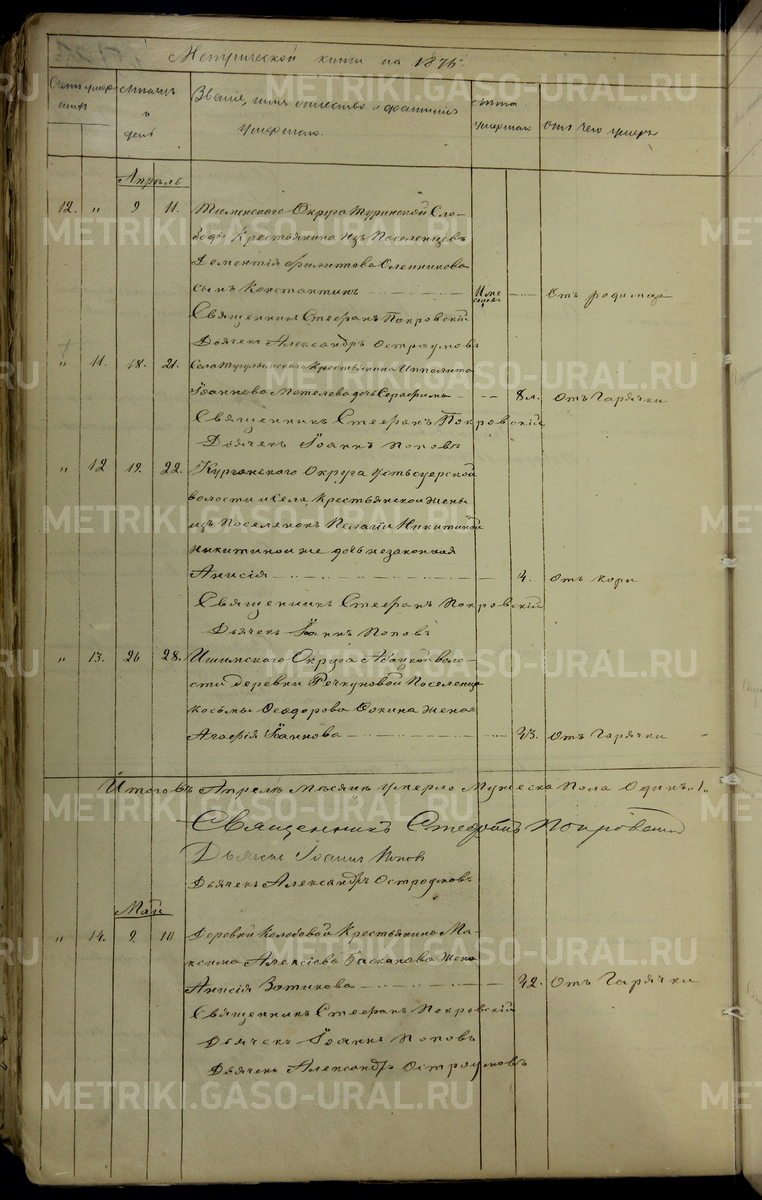 Метрической книги на 1876
Звание, имя отчество и фамилия
умершего.
Отъ чего умеръ
Апрель
12. „ 9 11. Тюменского Округа Туринской Сло-
боды Крестьянина изъ Поселенцевъ
Дементія Филипова Олейникова
сынъ Константинъ Отъ родимца
Священникъ Стефанъ Покровскій
Дьячекъ Александръ Остроумовъ
„ 11. 18. 21. Села Тугулымского Крестьянина Ипполита
Іоаннова Метелева дочь Серафима 8 л. Отъ Гарячки
Священникъ Стефанъ Покровскій
Дьячекъ Іоаннъ Поповъ
„ 12 19. 22. Курганского Округа Устьсуерской
волости и села, Крестьянской жены
изъ Поселенокъ Пелагіи Никитиной
Никитиной же дочь незаконная
Анисія 4. Отъ кори
Священникъ Стефанъ Покровскій
Дьячекъ Іоаннъ Поповъ
„ 13. 26 28. Ишимского Округа Абацкой воло-
сти деревни Речкуновой Поселенца
Косьмы Феодорова Сокина жена
Агафія Іоаннова 43. Отъ Гарячки
Итого въ Апреле месяце умерло Мужеска Пола Одинъ „1„
Священникъ Стефанъ Покровский
Дьячекъ Іоаннъ Попов
Дьячекъ Александръ Остроумовъ
Май
„ 14. 9. 10 Деревни Колобовой Крестьянина Ма-
ксима Алексіева Баскакова жена
Анисія Зотикова 42. Отъ Гарячки
Священникъ Стефанъ Покровскій
Дьячекъ Іоаннъ Поповъ
Дьячекъ Александръ Остроумовъ
METRIKI.GASO-URAL.RU